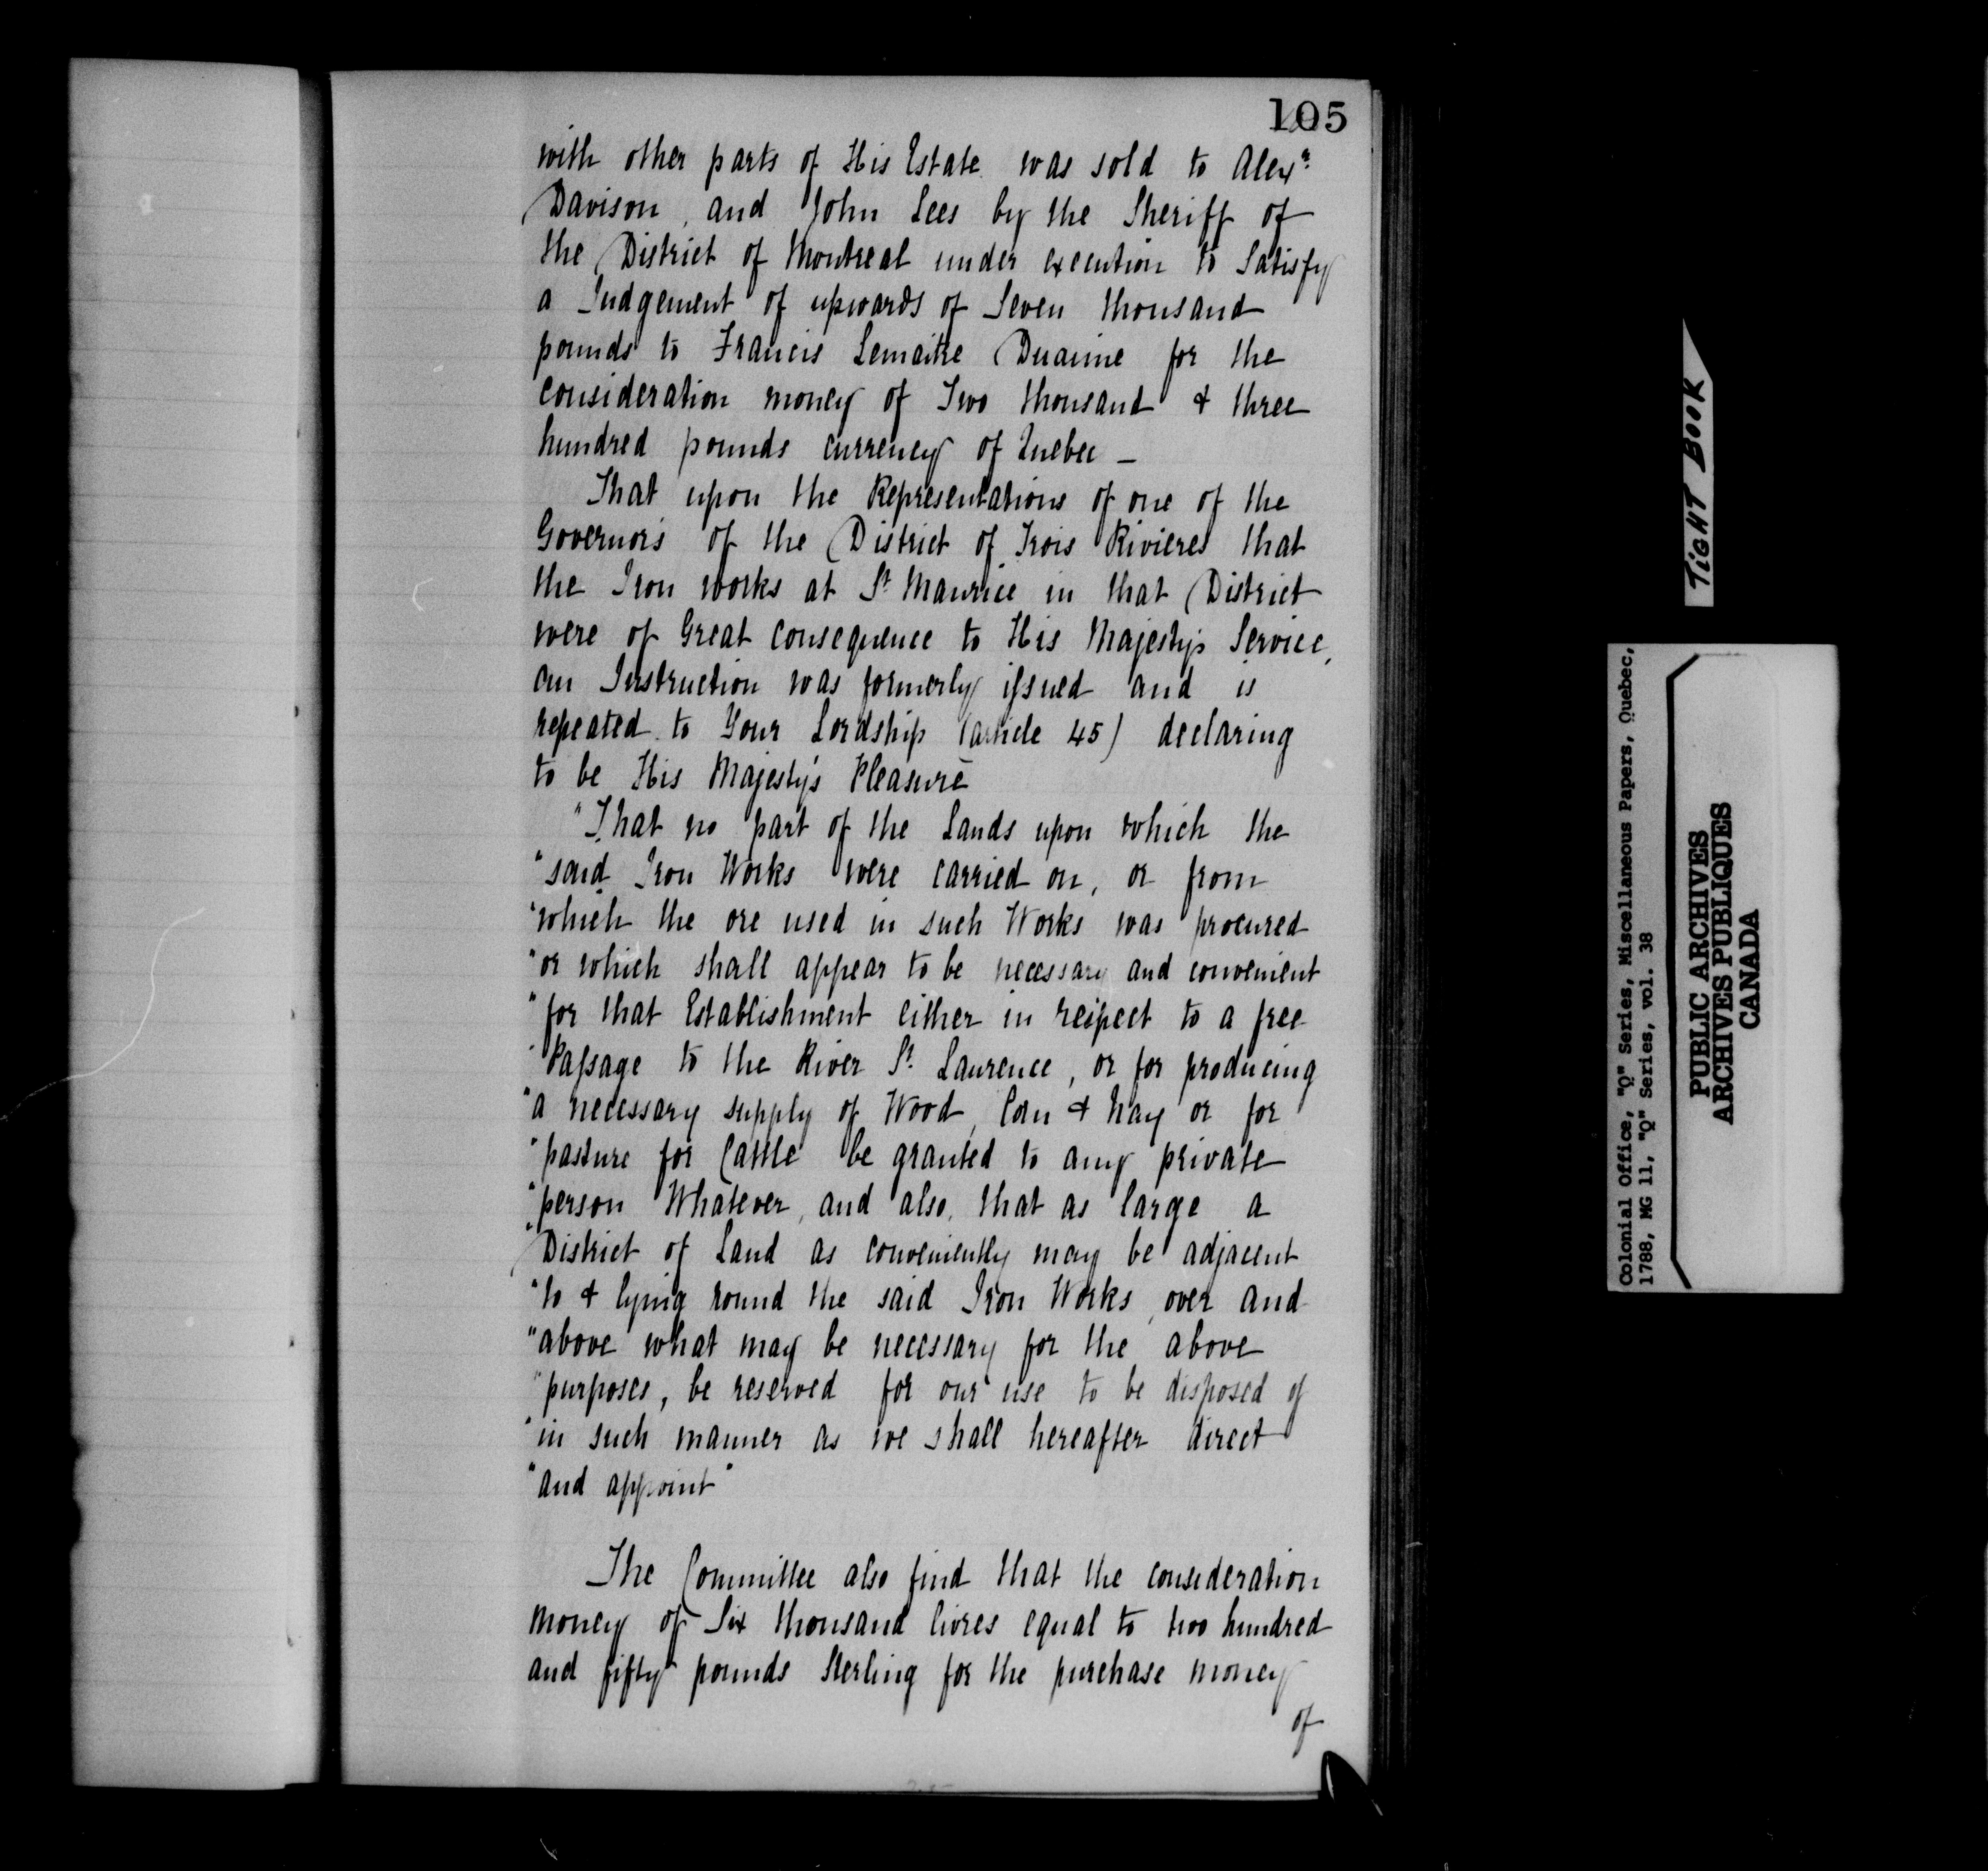 105
with other parts of His Estate was sold to Alexr
Davison, and John Lees by the Sheriff of
the District of Montreal under execution to Satisfy
a Judgement of upwards of Seven thousand
pounds to Francis Lemaitre Duaime for the
consideration money of Two thousand & three
hundred pounds currency of Quebec —
That upon the Representations of one of the
Governors of the District of Trois Rivieres that
the Iron works at St Maurice in that District
were of Great consequence to His Majesty's Service,
an Instruction was formerly issued and is
repeated to Your Lordship (article 45) declaring
to be His Majesty's Pleasure
"That no part of the Lands upon which the
"said Iron Works were carried on, or from
"which the ore used in such Works was procured
"or which shall appear to be necessary and convenient
"for that Establishment either in respect to a free
"Passage to the River St Laurence, or for producing
"a necessary supply of Wood, Corn & hay or for
"pasture for Cattle be granted to any private
"person Whatever, and also, that as large a
"District of Land as conveniently may be adjacent
"to & lying round the said Iron Works, over and
"above what may be necessary for the above
"purposes, be reserved for our use to be disposed of
"in such manner as we shall hereafter direct
"and appoint"
The Committee also find that the consideration
money of Six thousand livres equal to two hundred
and fifty pounds Sterling for the purchase money
of
TIGHT BOOK
Colonial Office, "Q" Series, Miscellaneous Papers, Quebec,
1788, MG 11, "Q" Series, vol. 38
PUBLIC ARCHIVES
ARCHIVES PUBLIQUES
CANADA